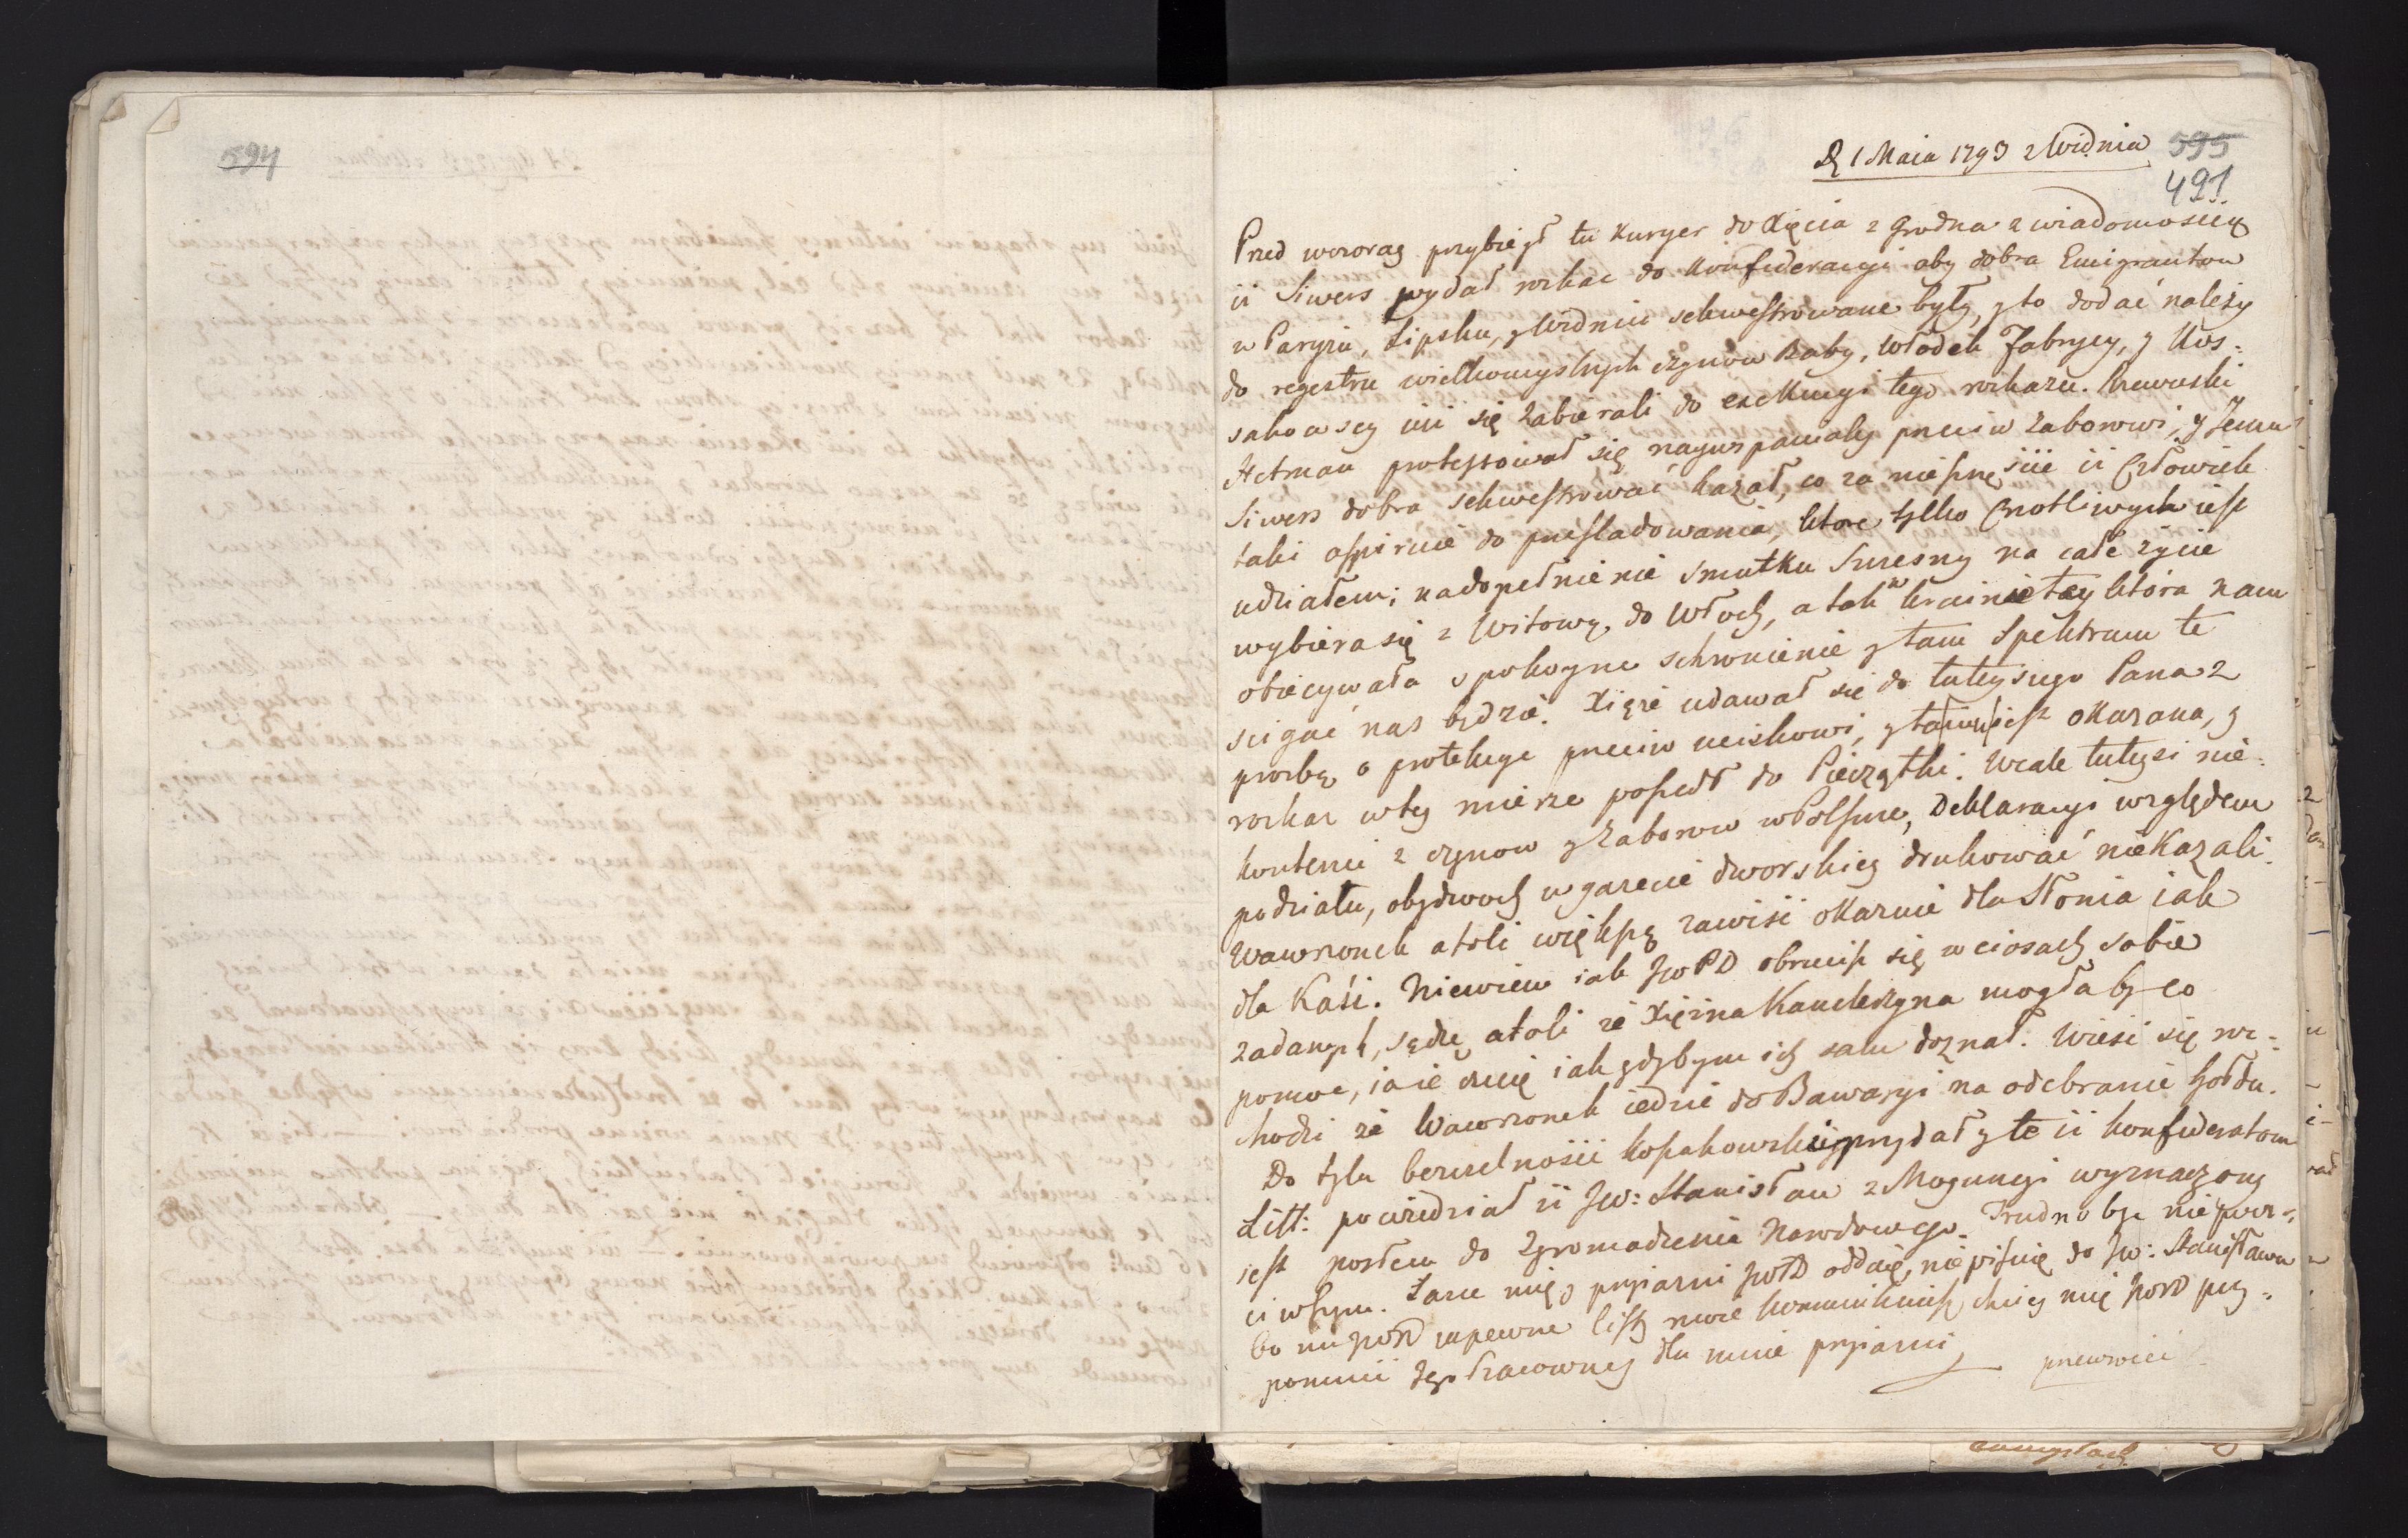 594
D 1 Maia 1793 z Widnia
595
491
Przed wczoray przybiegł tu Kuryer do Xięcia z Grodna z wiadomoscią
iż Siwers wydał rozkaz do Konfederacyi aby dobra Emigrantow
w Paryżu, Lipsku, y Widniu sekwestrowane były, y to dodać należy
do regestru wielkomyslnych czynow Baby, Włodek Fabrycy, y Kos=
sakowscy iuż się zabierali do exekucyi tego rozkazu. Rzewuski
Hetman protestował się naywspanialey przeciw zaborowi, y Jemu
Siwers dobra sekwestrować kazał, co za nieszczęście iż Człowiek
taki aspiruie do przesladowania, ktore tylko Cnotliwych iest
udziałem; nadopełnienie smutku Szczesny na całe życie
wybiera się z Witową do Włoch, a tak w krainie tey ktora nam
obiecywała spokoyne schronienie y tam Spektrum te
scigać nas będzie. Xiąże udawał się do tuteyszego Pana z
prozbą o protekcye przeciw uciskowi, y ta iuż iest okazana, y
rozkaz w tey mierze poszedł do Pieczątki. Wcale tuteysi nie=
kontenci z czynow y zaborow w Polszcze, Deklaracyi względem
podziału, obydwoch w gazecie dworskiey drukować nie kazali.
Wawrzonek atoli większą zawiść okazuie dla Słonia iak
dla Kaśi. Niewiem iak JWPD obrucisz się w ciosach sobie
zadanych, sądzę atoli że Xiężna Kanclerzyna mogła by co
pomoc, ia ie czuię iak gdybym ich sam doznał. Wieść się roz=
chodzi że Wawrzonek iedzie do Bawaryi na odebranie hołdu.
Do tylu bezczelności Kossakowski przydał y te iż konfederatom
Litt: powiedział iż JW: Stanisław z Moguncyi wyznaczony
iest posłem do Zgromadzenia Narodowego. Trudno by nie powr=
ci w tym. Łasce mię y przyiazni JWPD oddaię, nie piszę do JW: Stanisława
bo mu JWPD zapewne listy moie kommunikuiesz chciey mię JWPD przy=
pomnić Jego szacowney dla mnie przyiazni